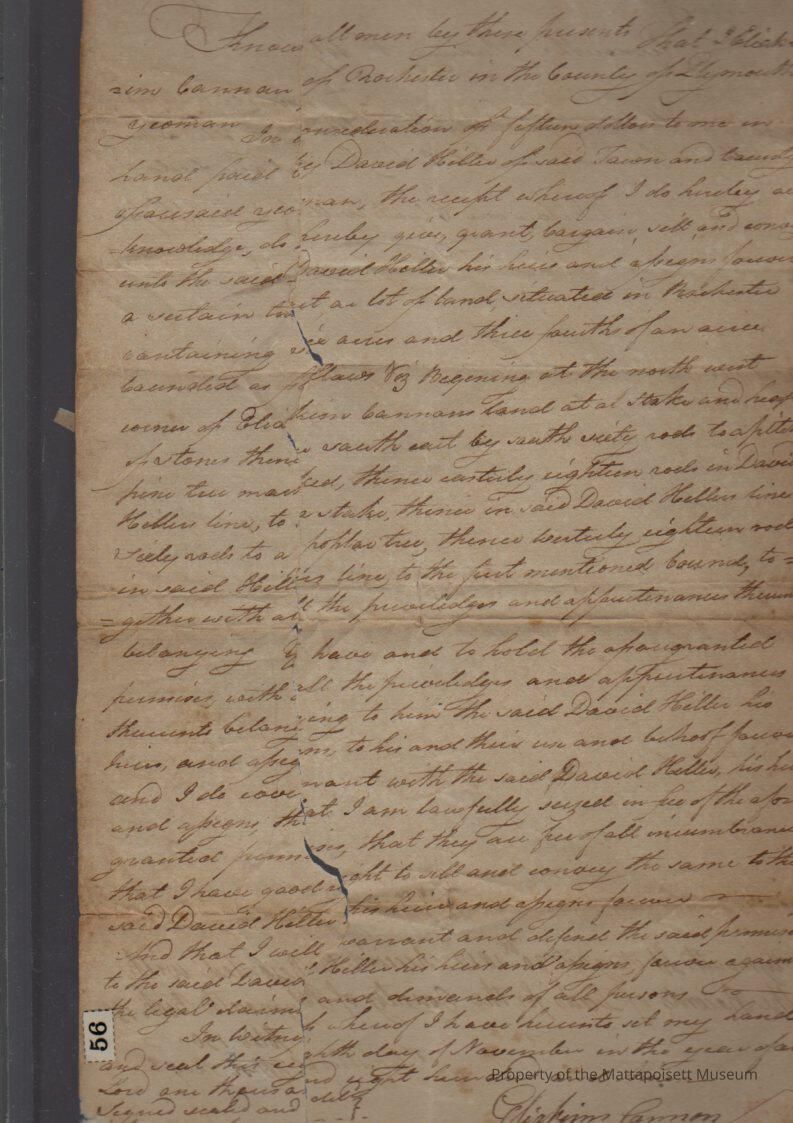 Know all men by these presents that I Eliak=
=im Cannan of Rochester in the County of Plymouth
yeoman In consideration of fifteen dollars to me in
hand paid by David Hiller of said Town and County
aforesaid yeoman, the receipt whereof I do hereby ac
=knowledge, do hereby give, grant, bargain, sell and convey
unto the said David Hiller his heirs and assigns forever
a certain tract or lot of land situated in Rochester
containing six acres and three fourth of an acre
bounded as follows Viz Begening at the north west
corner of Eliakim Cannans Land at a Stake and heap
of stones thence south east by south sixty rods to a pitch
pine tree marked, thence easterly eighteen rods in David
Hillers line, to a stake, thence in said David Hillers line
sixty rods to a poplar tree, thence westerly eighteen rods
in said Hillers line, to the first mentioned bound, to=
=gether with all the priviledges and appurtenances thereun
belonging To have and to hold the aforegranted
premises with all the priviledges and appurtenances
thereunto belonging to him the said David Hiller his
heirs, and assigns, to his and their use and behoof forever
and I do covenant with the said David Hiller, his heirs
and assigns, that I am lawfully seized in fee of the afore
granted premises, that they are free of all incumbrances
that I have good right to sell and convey the same to the
said David Hiller his heirs and assigns forever
And that I will warrant and defend the said premises
to the said David Hiller his heirs and assigns, forever against
the legal claims and demands of all persons
In Witness whereof I have hereunto set my hand
and seal this eighth day of November in the year of our
Lord one thousand eight hundred
Signed sealed and
Eliakim Cannon
56
Property of the Mattapoisett Museum